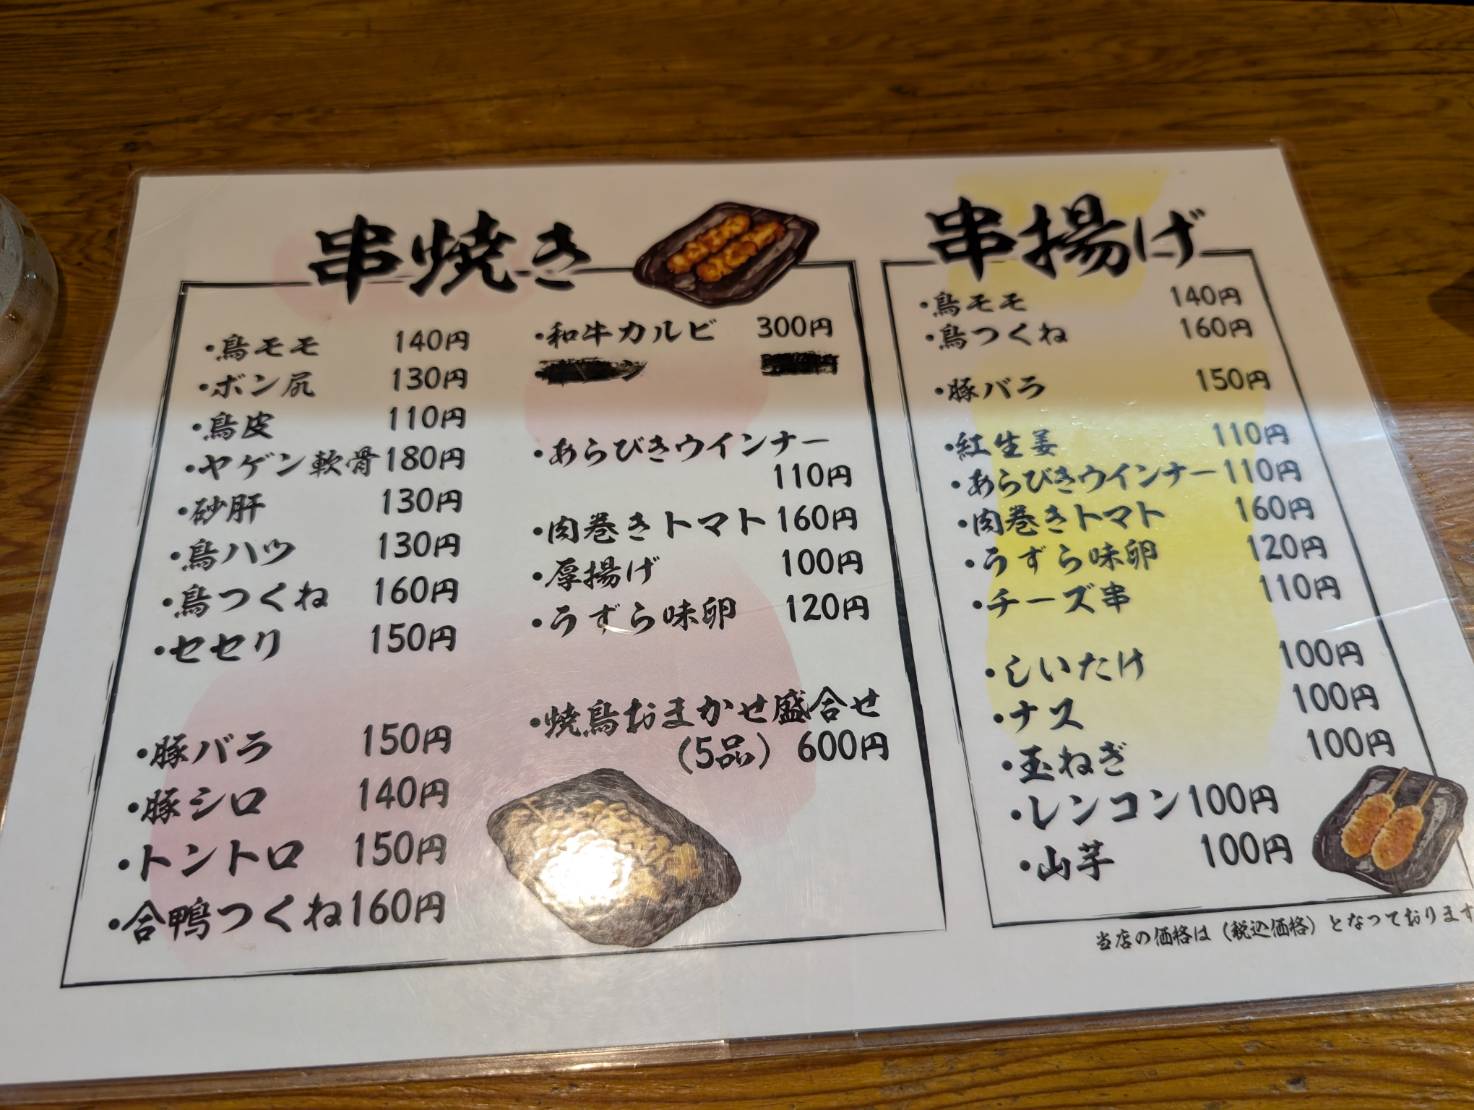 串焼き
・鳥モモ 140円
・ボン尻 130円
・鳥皮 110円
・ヤゲン軟骨 180円
・砂肝 130円
・鳥ハツ 130円
・鳥つくね 160円
・セセリ 150円
・豚バラ 150円
・豚シロ 140円
・トントロ 150円
・合鴨つくね 160円
・和牛カルビ 300円
・あらびきウインナー
110円
・肉巻きトマト 160円
・厚揚げ 100円
・うずら味卵 120円
・焼鳥おまかせ盛合せ
(5品) 600円
串揚げ
・鳥モモ 140円
・鳥つくね 160円
・豚バラ 150円
・紅生姜 110円
・あらびきウインナー 110円
・肉巻きトマト 160円
・うずら味卵 120円
・チーズ串 110円
・しいたけ 100円
・ナス 100円
・玉ねぎ 100円
・レンコン 100円
・山芋 100円
当店の価格は(税込価格)となっております